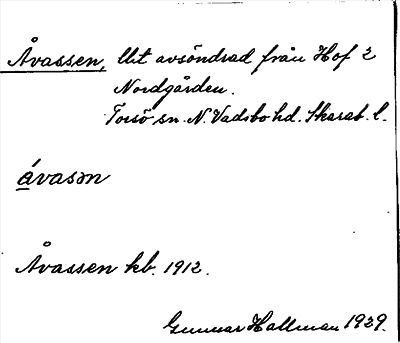 Åvassen, lht avsöndrad från Hof 2
Nordgården.
Torsö sn. N. Vadsbo hd. Skarab. l.
ávasɔn
Åvassen kb. 1912.
Gunnar Hallman 1929.